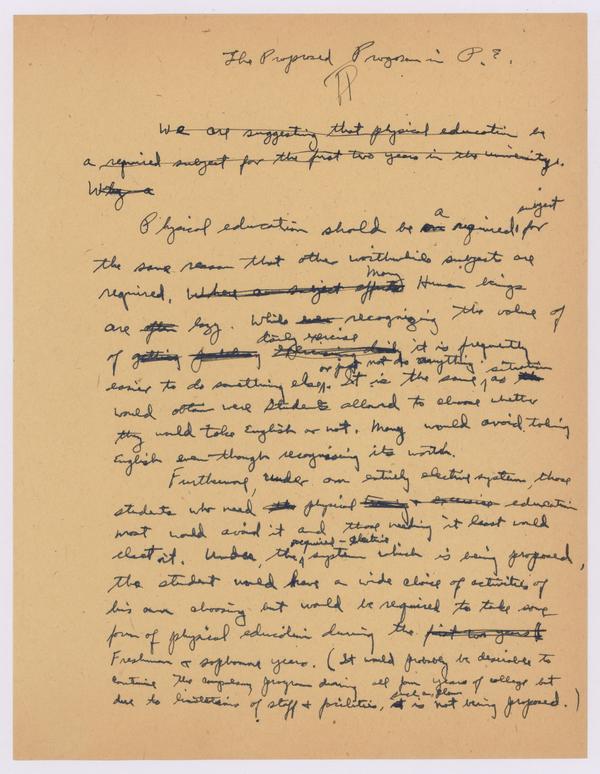 The Proposed Program in P.E.
We are suggesting that physical education be
a required subject for the first two years in the university.
Why a
Physical education should be a required subject for
the same reason that other worthwhile subjects are
required. Where a subject Many Human beings
are often lazy. While recognizing the value of
of getting daily exercise it is frequently
easier to do something else, or just not do anything. It is the same situation as
would obtain were students allowed to choose whether
they would take English or not. Many would avoid taking
English even though recognizing its worth.
Furthermore, under an entirely elective system, those
students who need physical & exercise education
most would avoid it and those needing it least would
elect it. Under the required-elective system which is being proposed,
the student would have a wide choice of activities of
his own choosing but would be required to take some
form of physical education during the first two years
Freshman & sophomore years. (It would probably be desirable to
continue the compulsory program during all four years of college but
due to limitations of staff & facilities, such a plan is not being proposed.)